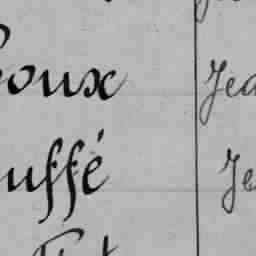 oux Jea
uffé Je